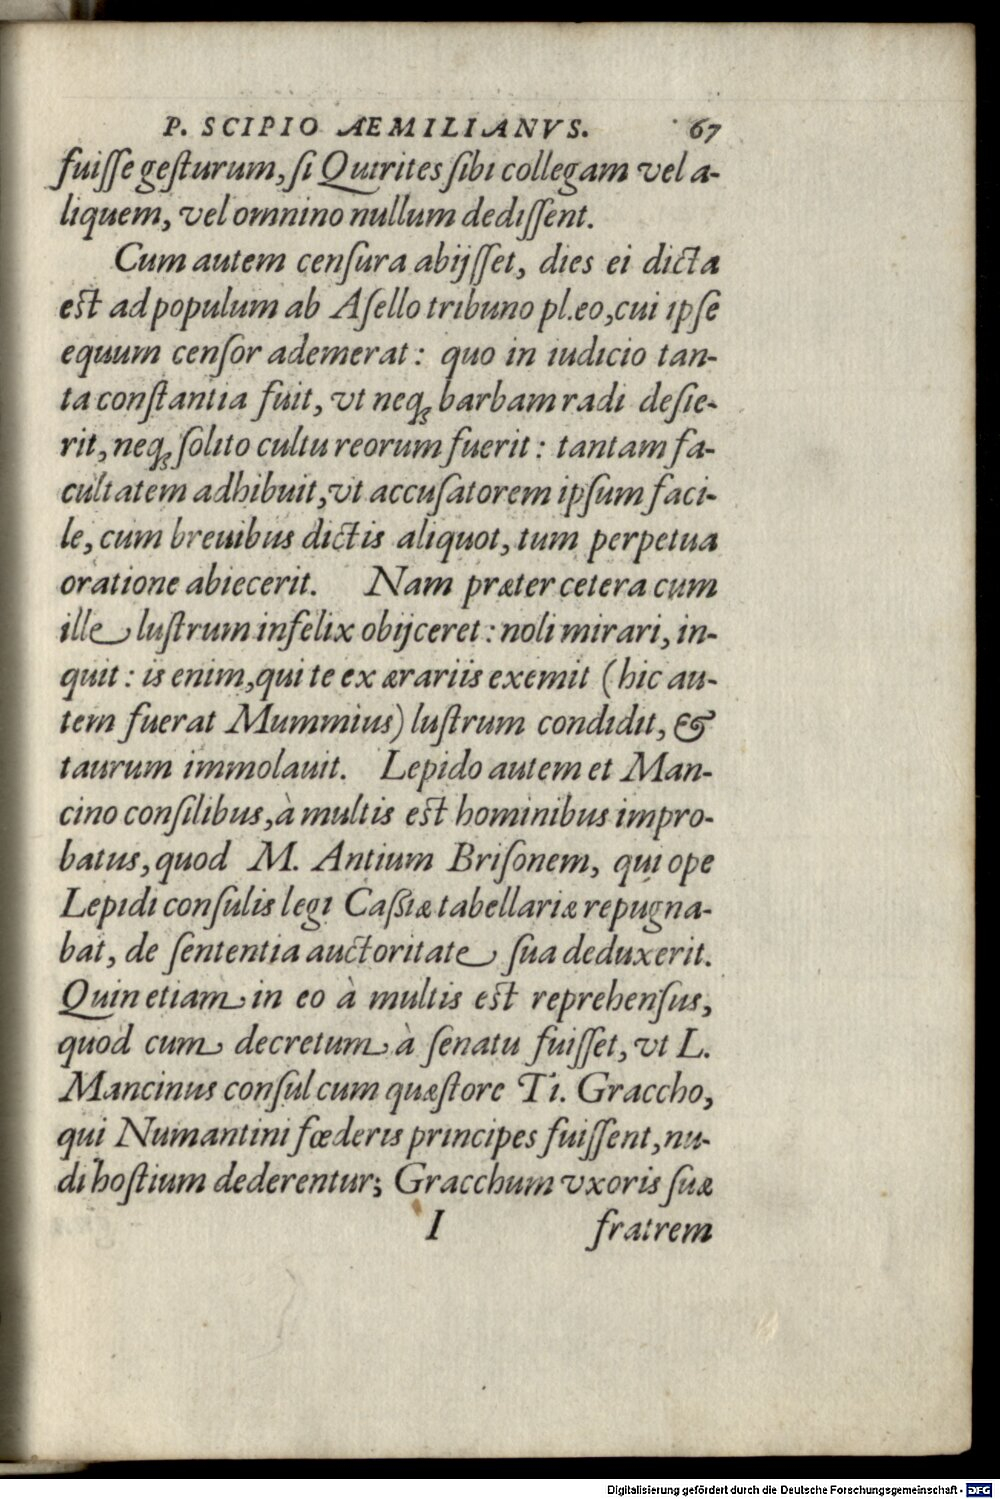 P. SCIPIO AEMILIANVS. 67
fuiſſe geſturum, ſi Quirites ſibi collegam vel a-
liquem, vel omnino nullum dediſſent.
Cum autem cenſura abijſſet, dies ei dicta
est ad populum ab Aſello tribuno pl. eo, cui ipſe
equum cenſor ademerat: quo in iudicio tan-
ta conſtantia fuit, vt neq; barbam radi deſie-
rit, neq; ſolito cultu reorum fuerit: tantam fa-
cultatem adhibuit, vt accuſatorem ipſum faci-
le, cum breuibus dictis aliquot, tum perpetua
oratione abiecerit. Nam præter cetera cum
ille luſtrum infelix obijceret: noli mirari, in-
quit: is enim, qui te ex ærariis exemit (hic au-
tem fuerat Mummius) luſtrum condidit, &
taurum immolauit. Lepido autem et Man-
cino conſilibus, à multis est hominibus impro-
batus, quod M. Antium Briſonem, qui ope
Lepidi conſulis legi Caſsiæ tabellariæ repugna-
bat, de ſententia auctoritate ſua deduxerit.
Quin etiam in eo à multis est reprehenſus,
quod cum decretum à ſenatu fuiſſet, vt L.
Mancinus conſul cum quæſtore Ti. Graccho,
qui Numantini fœderis principes fuiſſent, nu-
di hoſtium dederentur; Gracchum vxoris ſuæ
I fratrem
Digitalisierung gefördert durch die Deutsche Forschungsgemeinschaft - DFG